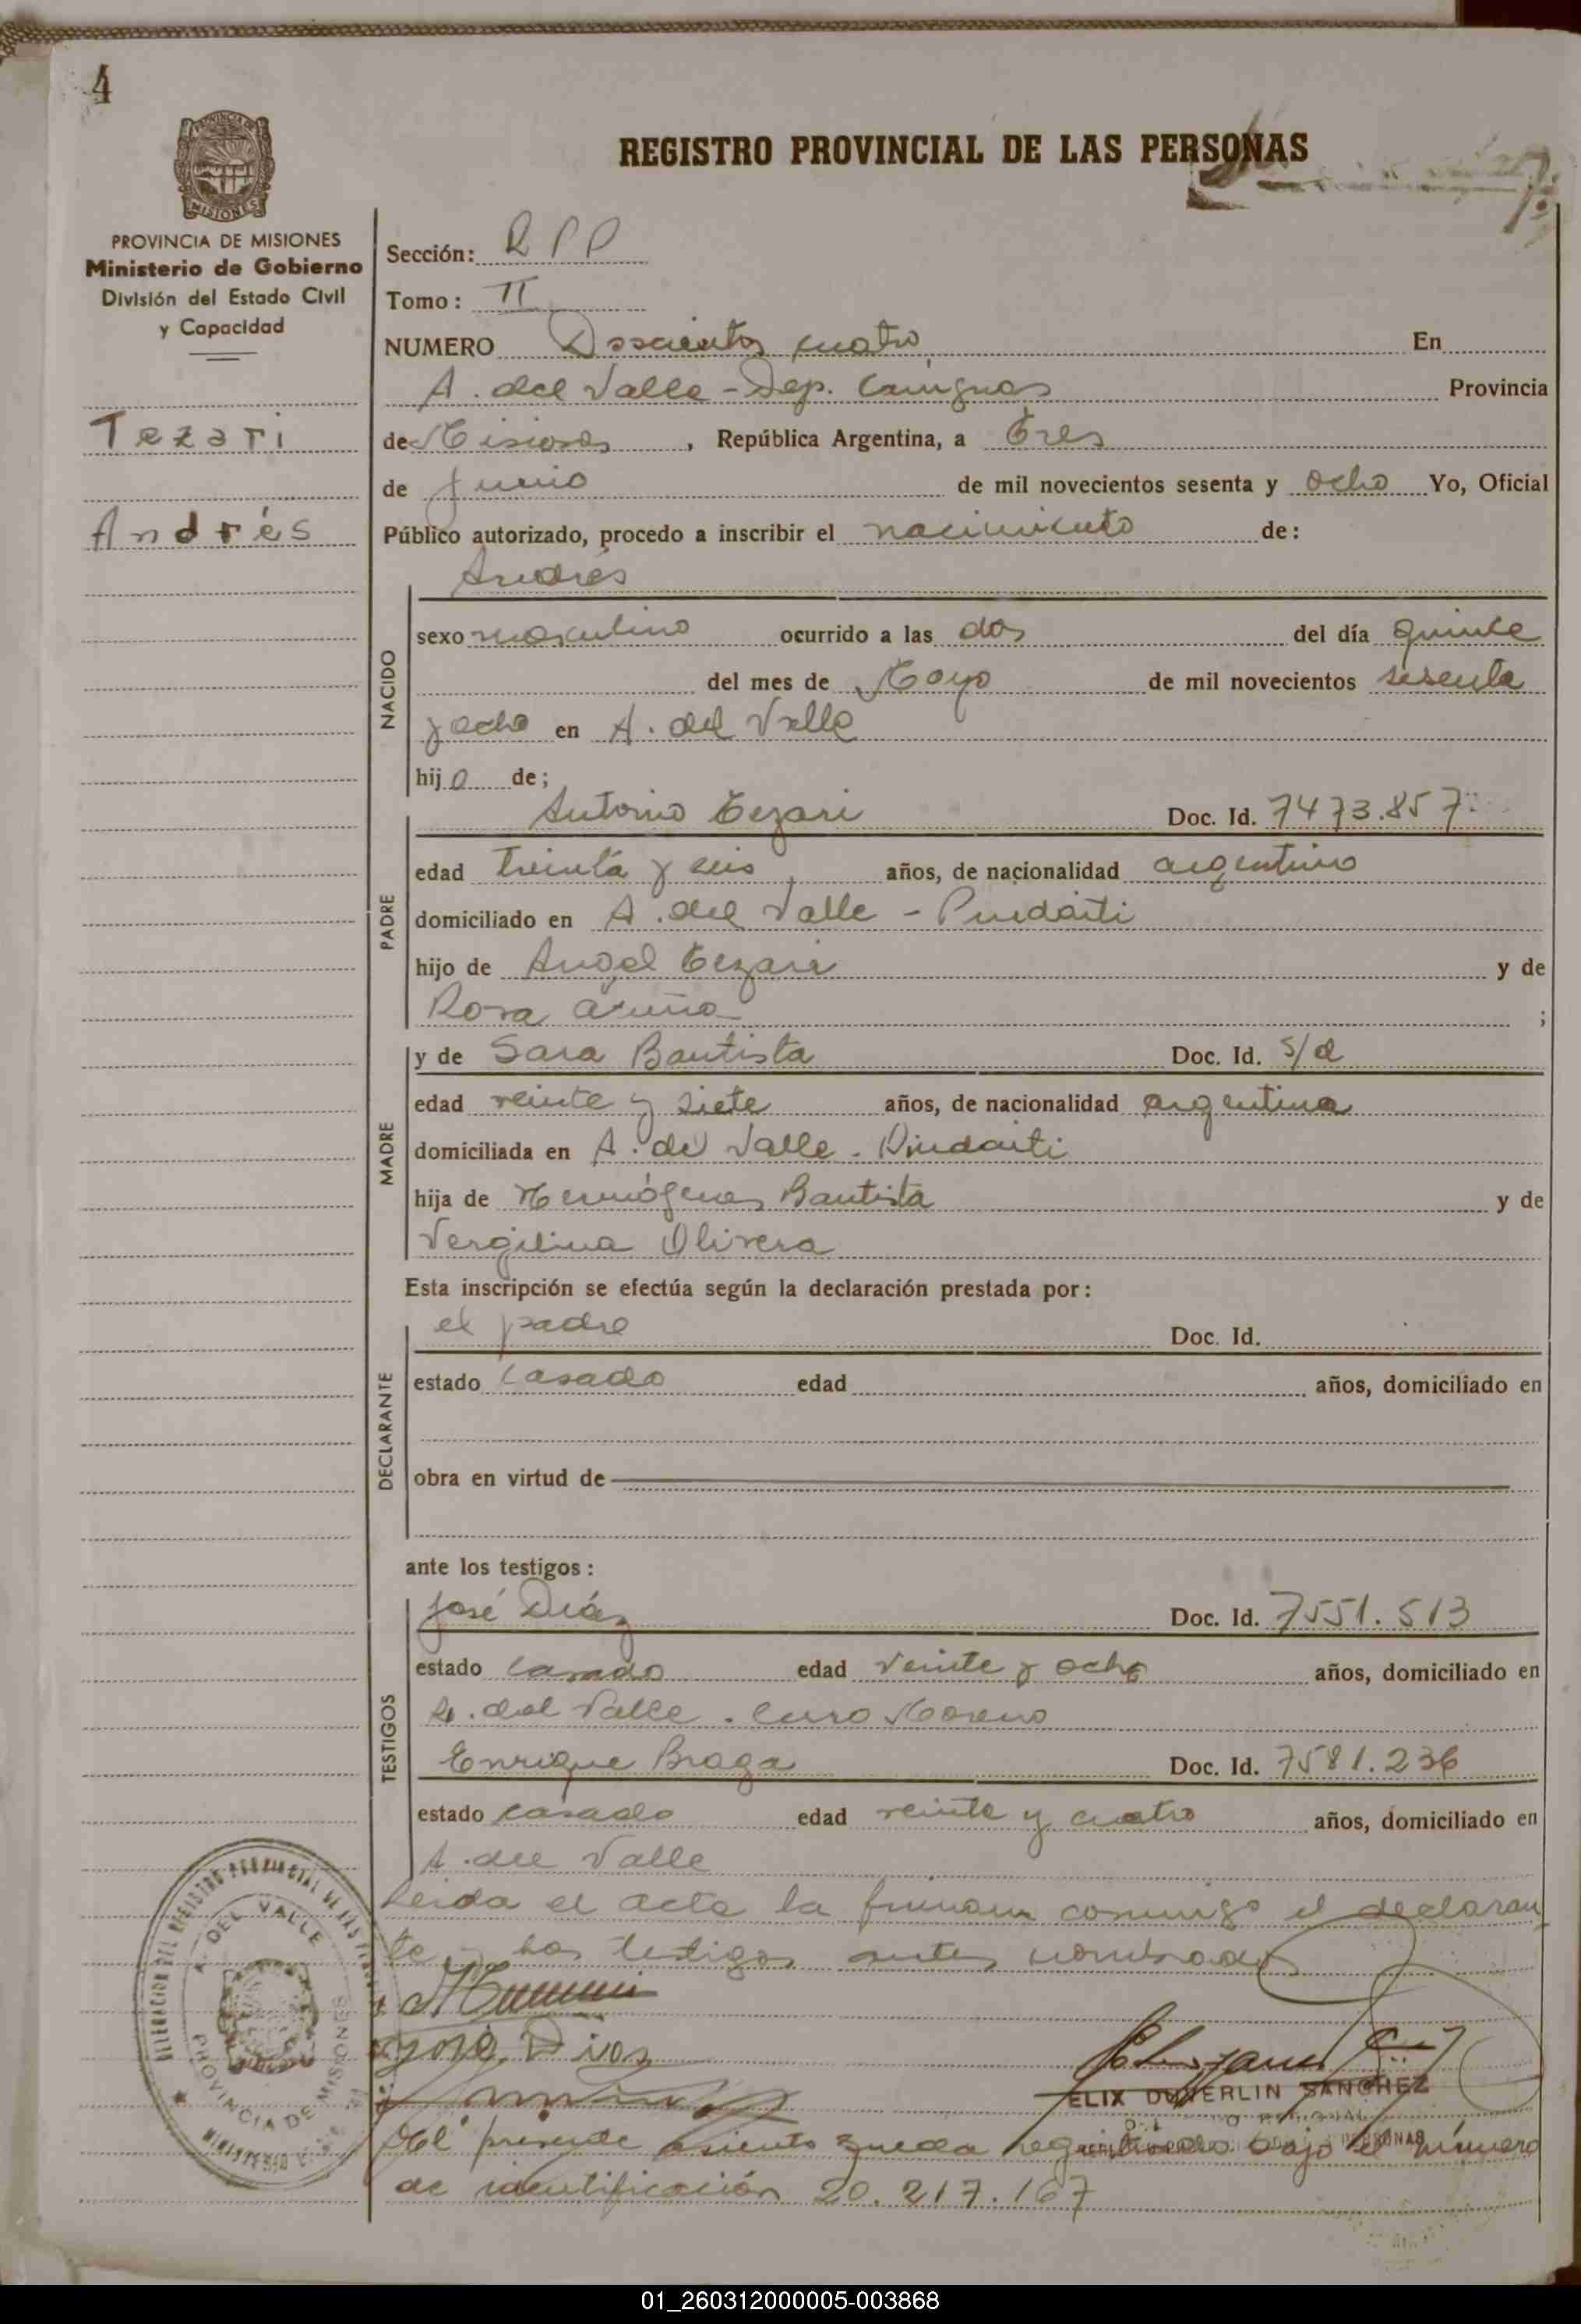 4
PROVINCIA DE MISIONES
Ministerio de Gobierno
División del Estado Civil
y Capacidad
Tezari
Andrés
REGISTRO PROVINCIAL DE LAS PERSONAS
Sección: R P P
Tomo: II
NUMERO Doscientos cuatro En
A. del Valle - Dep. Cainguas Provincia
de Misiones, República Argentina, a Tres
de Junio de mil novecientos sesenta y ocho Yo, Oficial
Público autorizado, procedo a inscribir el nacimiento de:
Andrés
NACIDO
sexo masculino ocurrido a las dos del día quince
del mes de Mayo de mil novecientos sesenta
y ocho en A. del Valle
hijo de;
PADRE
Antonio Tezari Doc. Id. 7473.857
edad treinta y seis años, de nacionalidad argentino
domiciliado en A. del Valle - Pindaiti
hijo de Angel Tezari y de
Rosa ;
MADRE
y de Sara Bautista Doc. Id. s/d
edad veinte y siete años, de nacionalidad argentina
domiciliada en A. del Valle - Pindaiti
hija de Hermógenes Bautista y de
Vergilina Olivera
Esta inscripción se efectúa según la declaración prestada por:
DECLARANTE
el padre Doc. Id.
estado casado edad años, domiciliado en
obra en virtud de
ante los testigos:
TESTIGOS
José Diáz Doc. Id. 7551.513
estado casado edad veinte y ocho años, domiciliado en
A. del Valle - Curo Moreno
Enrique Braga Doc. Id. 7581.236
estado casado edad veinte y cuatro años, domiciliado en
A. del Valle
Leida el acta la firman conmigo el declaran
te y los testigos antes nombrados
José Diaz
DELEGACION DEL REGISTRO PROVINCIAL DE LAS
A. DEL VALLE
PROVINCIA DE MISIONES
MINISTERIO
SANCHEZ
PERSONAS
El presente asiento queda registrado bajo el número
de identificación 20.217.167
01_260312000005-003868